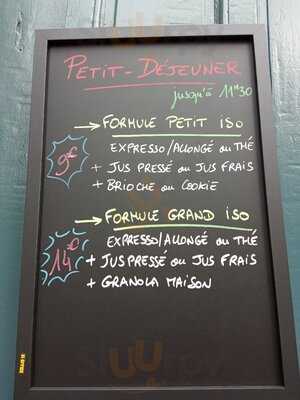 PETIT-DÉJEUNER
jusqu'à 11H30
→ FORMULE PETIT ISO
9€
EXPRESSO/ALLONGÉ ou THÉ
+ JUS PRESSÉ ou JUS FRAIS
+ BRIOCHE ou COOKIE
→ FORMULE GRAND ISO
14€
EXPRESSO/ALLONGÉ ou THÉ
+ JUS PRESSÉ ou JUS FRAIS
+ GRANOLA MAISON